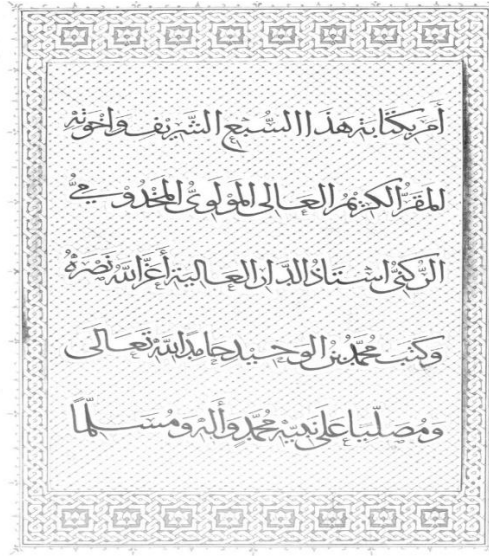 أمر بكتابة هذا السبع الشريف وأخوته
المقر الكريم العالى المولوىُّ المخدومىُّ
الركنىُّ استاذ الدار العالية أعز الله نصرهُ
وكتب محمد بن الوحيد حامدا لله تعالى
ومصلّيا على نبيه محمد وأله ومسلّمًا